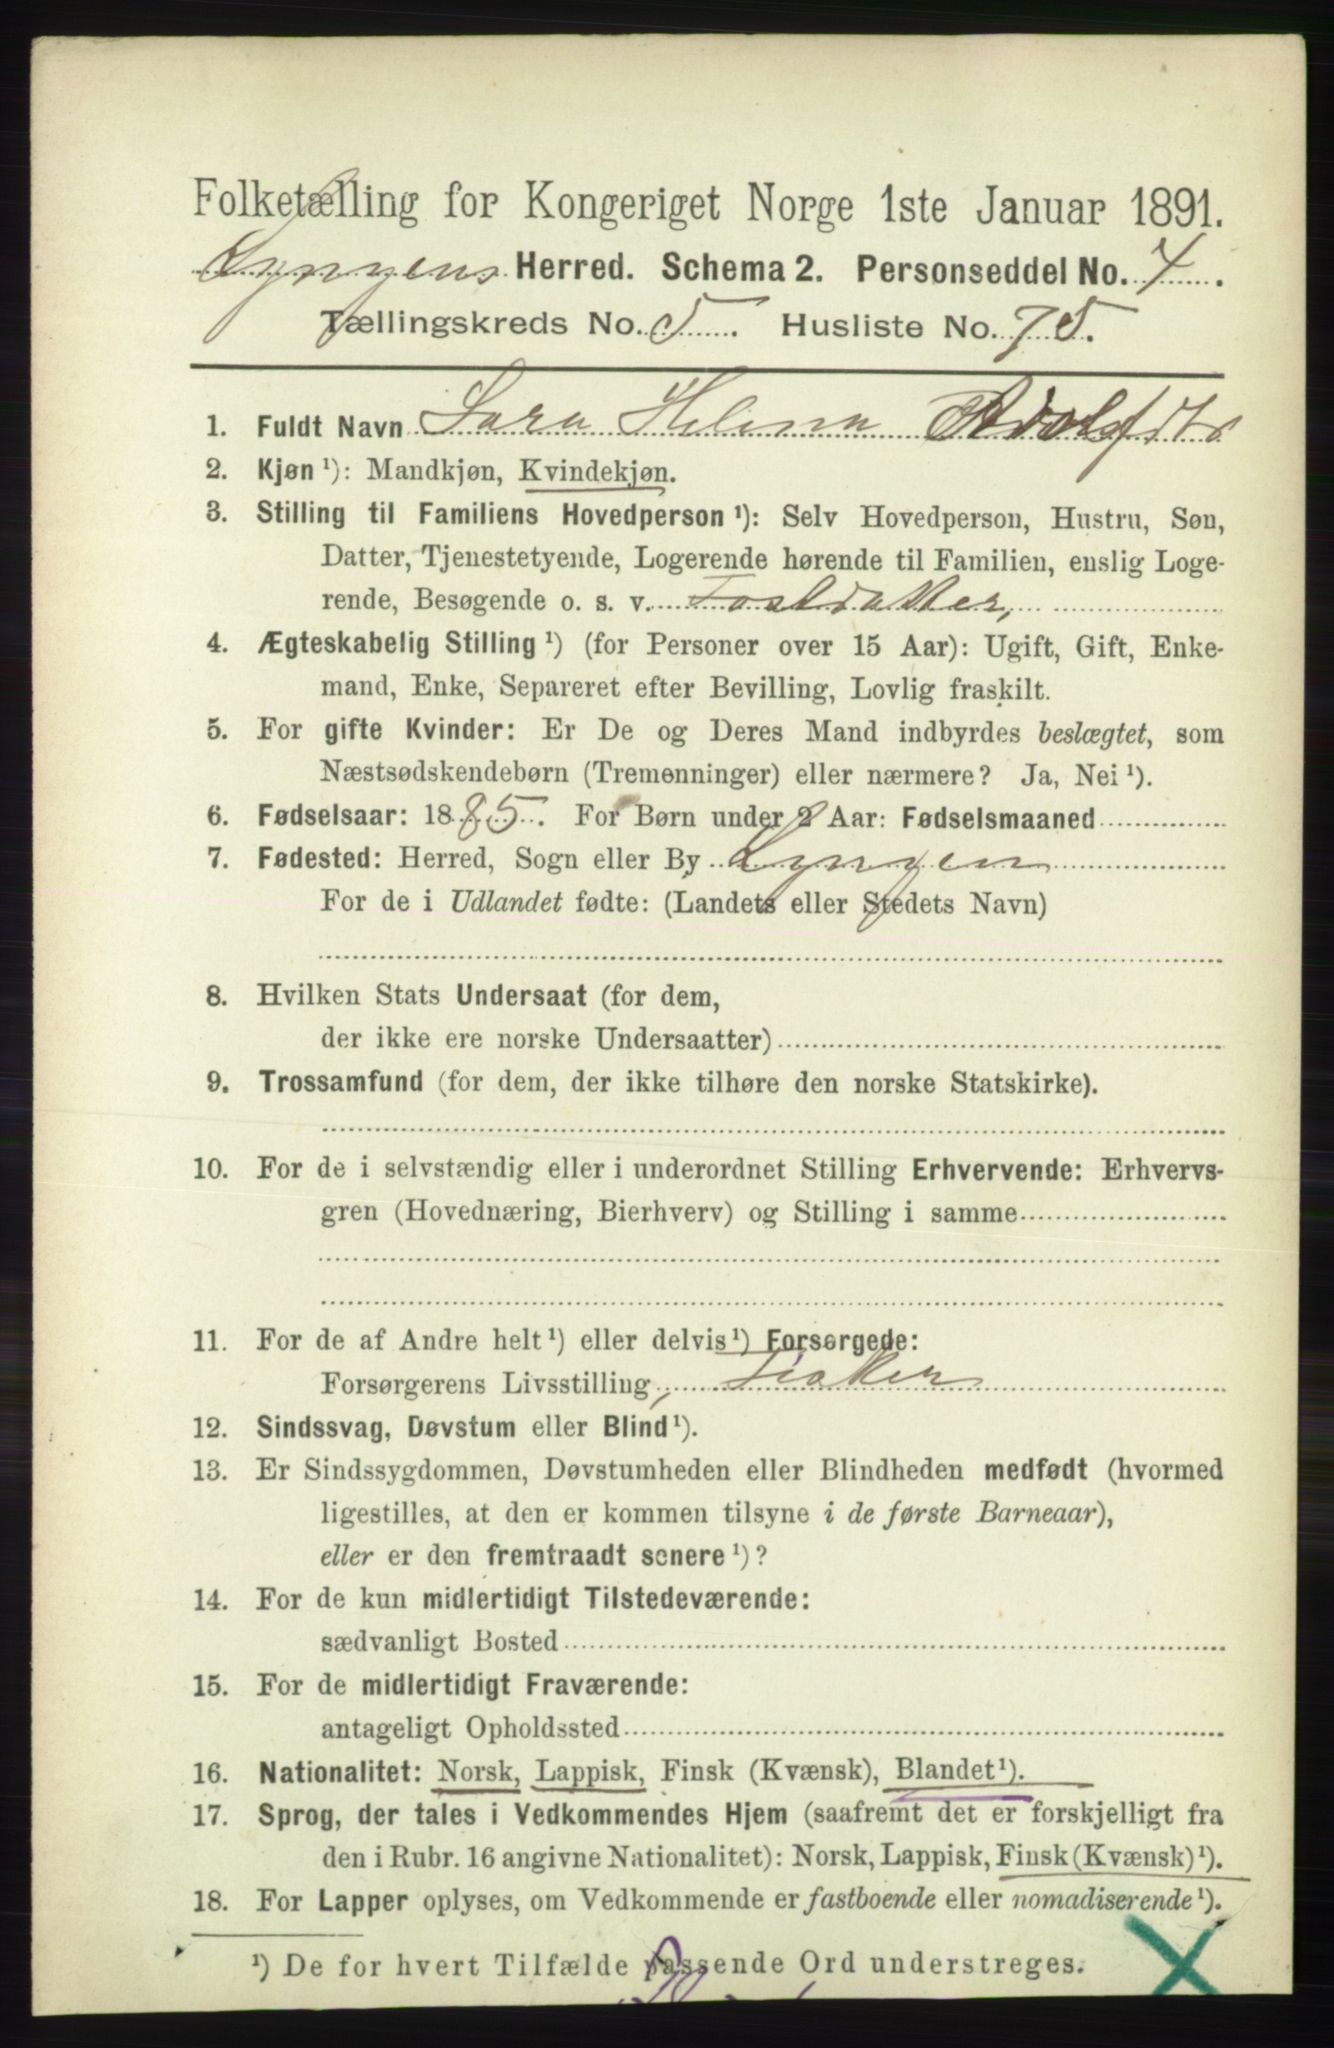 Folketælling for Kongeriget Norge 1ste Januar 1891.
Lyngens Herred. Schema 2. Personseddel No. 4.
Tællingskreds No. 5. Husliste No. 75.
1. Fuldt Navn Sara Helena Adolfdtr
2. Kjøn ¹): Mandkjøn, Kvindekjøn.
3. Stilling til Familiens Hovedperson ¹): Selv Hovedperson, Hustru, Søn,
Datter, Tjenestetyende, Logerende hørende til Familien, enslig Loge-
rende, Besøgende o. s. v. Fostdatter,
4. Ægteskabelig Stilling ¹) (for Personer over 15 Aar): Ugift, Gift, Enke-
mand, Enke, Separeret efter Bevilling, Lovlig fraskilt.
5. For gifte Kvinder: Er De og Deres Mand indbyrdes beslægtet, som
Næstsødskendebørn (Tremenninger) eller nærmere? Ja, Nei ¹).
6. Fødselsaar: 1885. For Børn under 2 Aar: Fødselsmaaned
7. Fødested: Herred, Sogn eller By Lyngen
For de i Udlandet fødte: (Landets eller Stedets Navn)
8. Hvilken Stats Undersaat (for dem,
der ikke ere norske Undersaatter)
9. Trossamfund (for dem, der ikke tilhøre den norske Statskirke).
10. For de i selvstændig eller i underordnet Stilling Erhvervende: Erhvervs-
gren (Hovednæring, Bierhverv) og Stilling i samme
11. For de af Andre helt ¹) eller delvis ¹) Forsørgede:
Forsørgerens Livsstilling, Fisker
12. Sindssvag, Døvstum eller Blind ¹).
13. Er Sindssygdommen, Døvstumheden eller Blindheden medfødt (hvormed
ligestilles, at den er kommen tilsyne i de første Barneaar),
eller er den fremtraadt senere ¹)?
14. For de kun midlertidigt Tilstedeværende:
sædvanligt Bosted
15. For de midlertidigt Fraværende:
antageligt Opholdssted
16. Nationalitet: Norsk, Lappisk, Finsk (Kvænsk), Blandet ¹).
17. Sprog, der tales i Vedkommendes Hjem (saafremt det er forskjelligt fra
den i Rubr. 16 angivne Nationalitet): Norsk, Lappisk, Finsk (Kvænsk) ¹).
18. For Lapper oplyses, om Vedkommende er fastboende eller nomadiserende ¹).
¹) De for hvert Tilfælde passende Ord understreges.